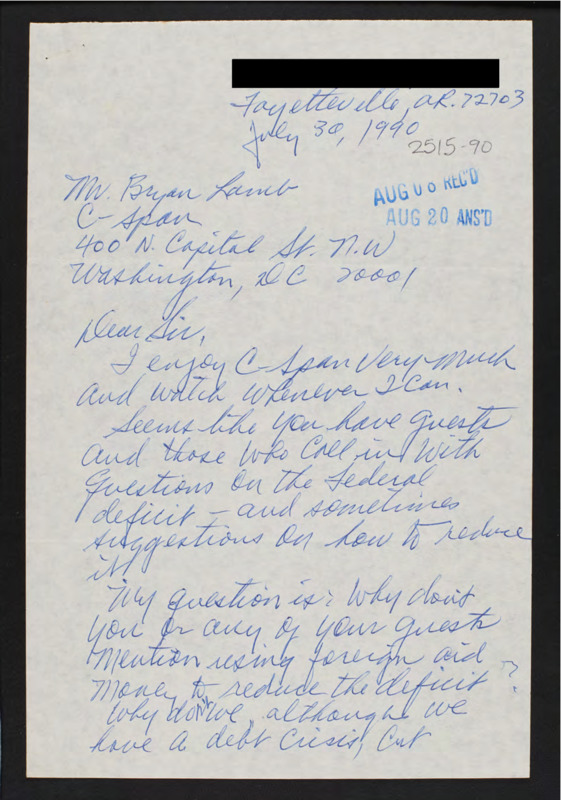 Fayetteville, AR. 72703
July 30, 1990
2515-90
Mr. Bryan Lamb
AUG 06 REC'D
C-Span
AUG 20 ANS'D
400 N. Capital St. N.W
Washington, DC 20001
Dear Sir,
I enjoy C-Span Very Much
and watch whenever I can.
Seems like you have guests
and those who call in with
questions on the Federal
deficit - and sometimes
suggestions on how to reduce
it.
My question is: Why don't
you or any of your guests
mention using foreign aid
money to reduce the deficit?
Why don't we, although we
have a debt crisis, cut